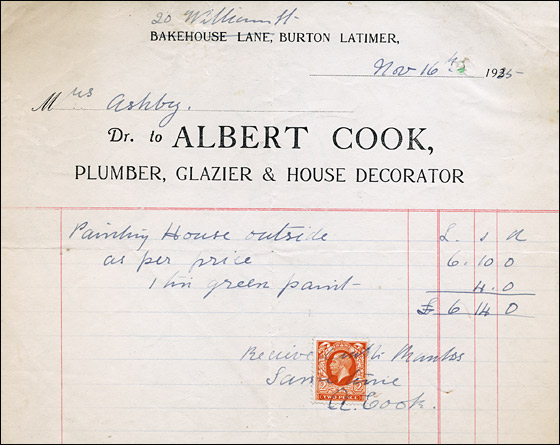 20 William St
BAKEHOUSE LANE, BURTON LATIMER,
Nov 16th 1935
Mrs Ashby.
Dr. to ALBERT COOK,
PLUMBER, GLAZIER & HOUSE DECORATOR
Painting House outside £. s d
as per price 6. 10 0
1 tin green paint 4. 0
£ 6 14 0
Received with thanks
Same time
A. Cook.